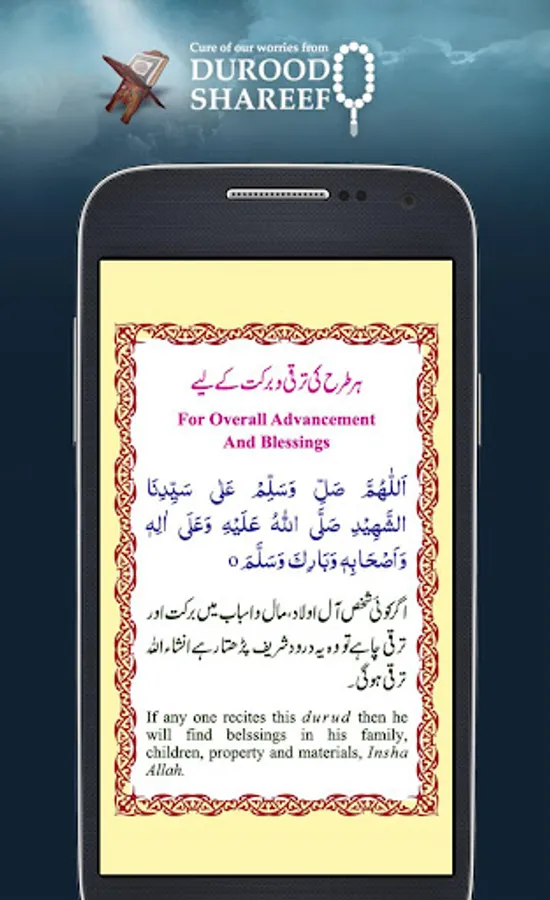 Cure of our worries from
DUROOD
SHAREEF
ہر طرح کی ترقی و برکت کے لیے
For Overall Advancement
And Blessings
اَللّٰهُمَّ صَلِّ وَسَلِّمْ عَلٰی سَیِّدِنَا
الشَّهِیْدِ صَلَّی اللّٰهُ عَلَیْهِ وَعَلٰی اٰلِهٖ
وَاَصْحَابِهٖ وَبَارِكَ وَسَلَّمَ o
اگر کوئی شخص آل اولاد، مال و اسباب میں برکت اور
ترقی چاہے تو وہ یہ درود شریف پڑھتا رہے انشاء اللہ
ترقی ہوگی۔
If any one recites this durud then he
will find belssings in his family,
children, property and materials, Insha
Allah.